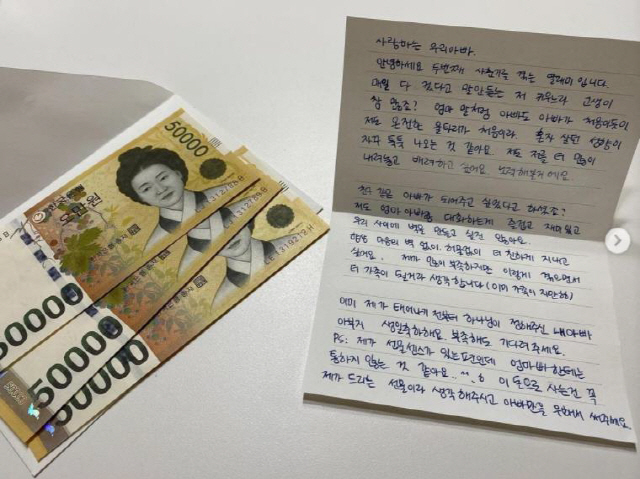 50000
한국은행
오만원
50000
50000
50000
사랑하는 우리아빠.
안녕하세요 두번째 사춘기를 겪는 딸래미입니다.
매일 다 컸다고 말안듣는 저 키우느라 고생이
참 많죠? 엄마 말처럼 아빠도 아빠가 처음이듯이
저도 온전한 울타리가 처음이라 혼자 살던 습관이
자꾸 툭툭 나오는 것 같아요 저도 지금 더 많이
내려놓고 배려하고 노력해볼게요
친구 같은 아빠가 되어주고 싶었다고 하셨죠?
저도 엄마아빠랑 대화하는게 즐겁고 재미있고
우리 사이에 벽을 만들고 싶진 않아요.
마음의 벽 없이. 허물없이 더 친하게 지내고
싶어요. 제가 많이 부족하지만 이렇게 겪으면서
더 가족이 되는거라 생각합니다 (이미 가족이지만ㅎ)
이미 제가 태어나기 전부터 하나님이 정해주신 내아빠
아부지 생일축하해요. 부족해도 기다려주세요.
PS: 제가 선물센스가 있는편인데 엄마빠한테는
통하지 않는 것 같아요.. 이 돈으로 사는건 꼭
제가 드리는 선물이라 생각해주시고 아빠만을 위해서 써주세요.